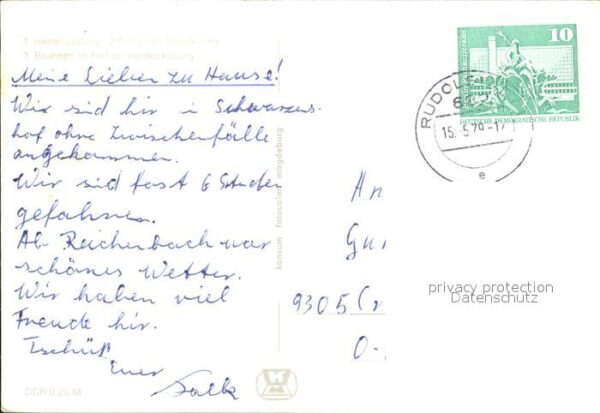 1 Heidecksburg 2 Portal der Stadtkirche
3 Brunnen im Hof der Heidecksburg
Meine Lieben zu Hause!
Wir sid hir i Schwarzens-
hof ohne Zwischenfälle
angekommen.
Wir sid fast 6 Studen
gefahren.
Ab Reichenbach war
schönes Wetter.
Wir haben viel
Freude hir.
Tschüß!
Euer
DDR 0,20 M
konsum fotocolor magdeburg
10
DEUTSCHE DEMOKRATISCHE REPUBLIK
RUDOLS
15.5.79-17
e
An
Gu
9305
O-
privacy protection
Datenschutz